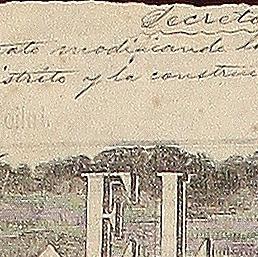 Secreto
ato modificando l
istrito y la construc
EL